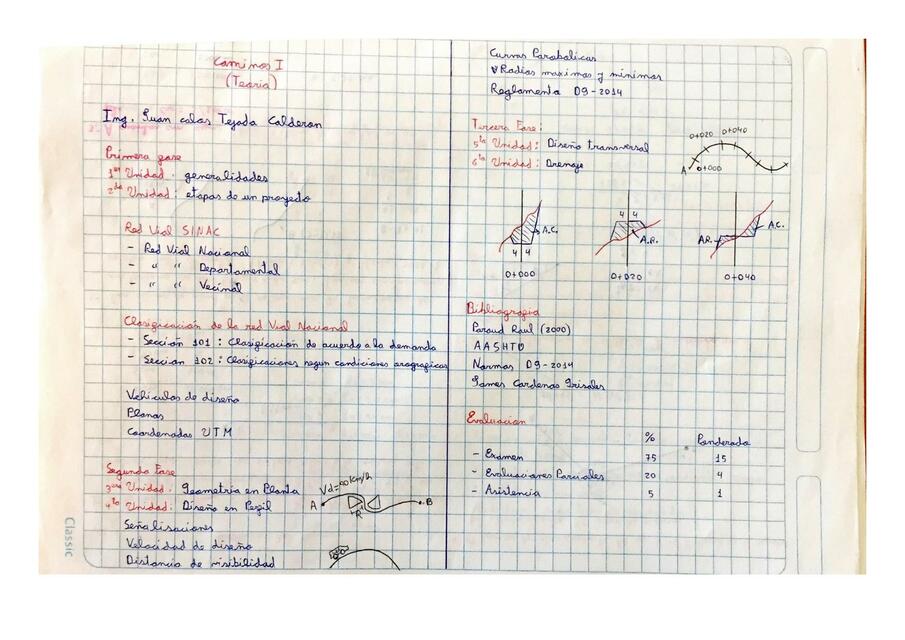 Caminos I
(Teoria)
Ing. Juan calos Tejada Calderon
Primera fase
1ra Unidad: generalidades
2da Unidad: etapas de un proyecto
Red Vial SINAC
- Red Vial Nacional
- " " Departamental
- " " Vecinal
Clasificación de la red Vial Nacional
- Sección 101: Clasificación de acuerdo a la demanda
- Sección 102: Clasificaciones segun condiciones orograficas
Vehiculos de diseño
Planos
Coordenadas UTM
Segunda Fase
3era Unidad: Geometria en Planta
4to Unidad: Diseño en Perfil
Vd= Km/h
A
R
B
Señalisaciones
Velocidad de diseño
Distancia de visibilidad
Classic
Curvas Parabolicas
Radios maximos y minimos
Reglamento D9-2014
Tercera Fase:
5ta Unidad: Diseño transversal
6ta Unidad: Drenaje
0+020 0+040
A 0+000
A.C.
4 4
0+000
4 4
A.R.
0+020
AR.
A.C.
0+040
Bibliografia
Raul (2000)
AASHTO
Normas D9-2014
James Cardenas Grisales
Evaluacion
% Ponderado
- Examen 75 15
- Evaluaciones Parciales 20 4
- Asistencia 5 1